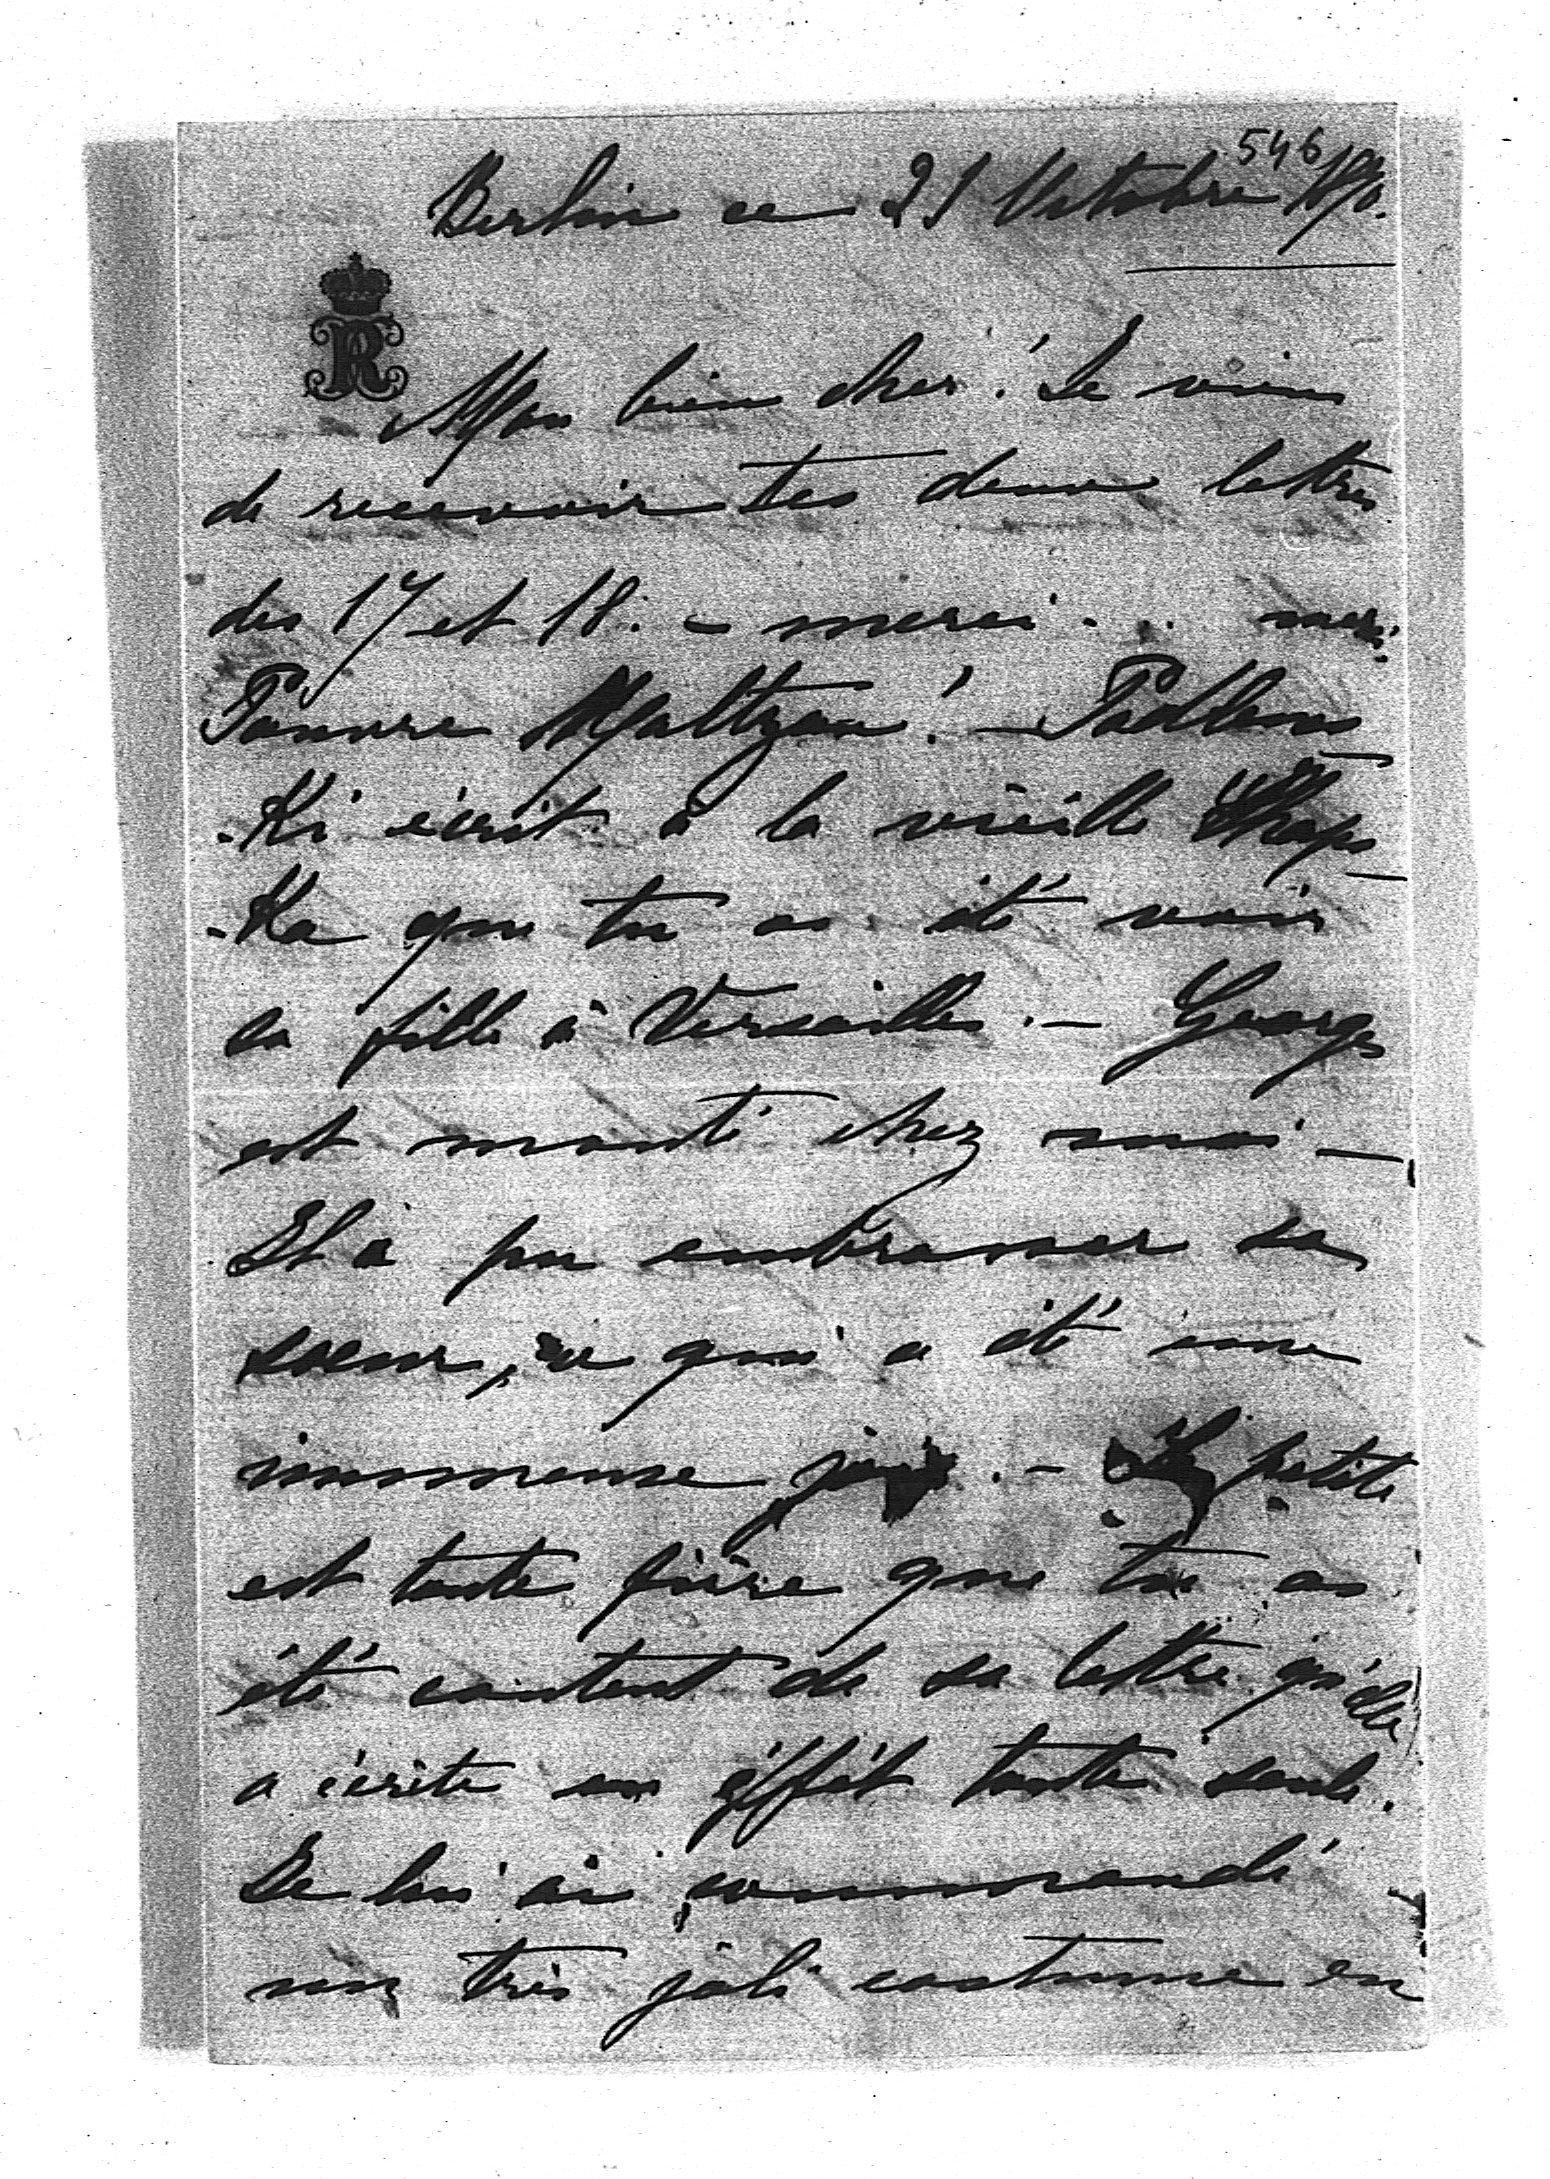 546
Berlin ce 21 Octobre 1870.
R
Mon bien cher! Je viens
de recevoir tes deux lettres
des 17 et 18. - merci... merci
Pauvre Maltzan! -
-Ki écrit à la vieille
-Ka que tu as été voir
sa fille à Versailles. - Georges
est monté chez moi -
Et a pu embrasser sa
soeur, ce qui a été une
immense joie. - La petite
est toute fière que tu as
été content de sa lettre qu'elle
a écrite en éffèt toute seule.
Je lui ai commandé
un très joli costume en